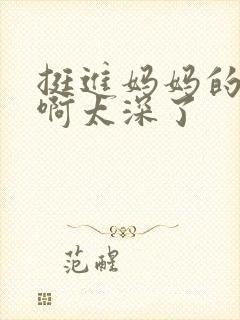 挺进妈妈的
啊太深了
范醒